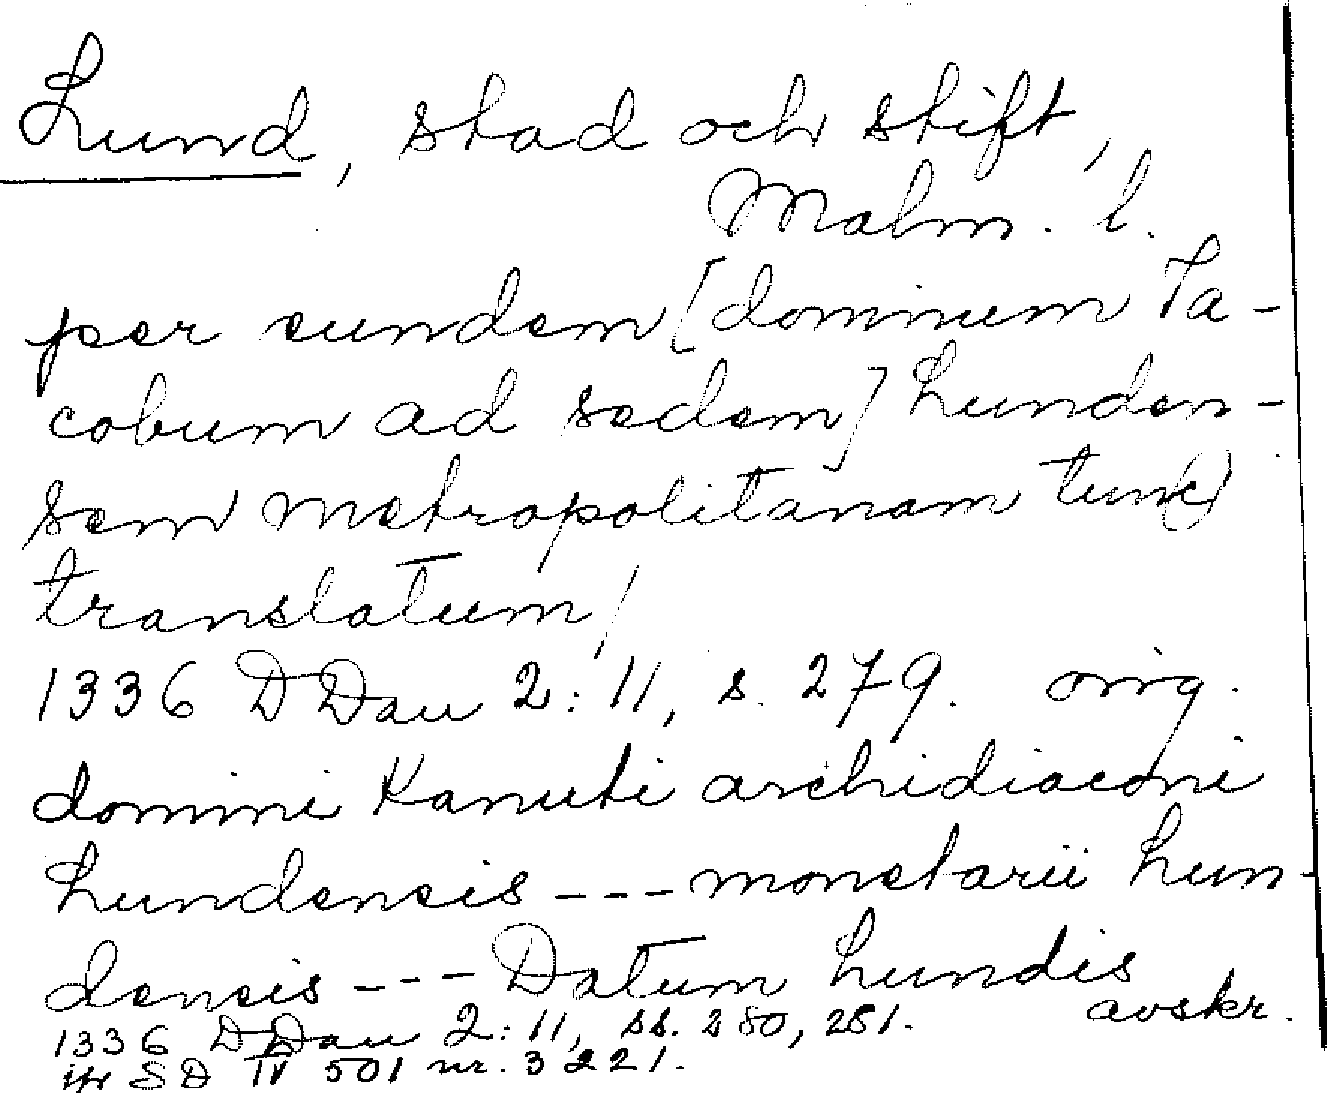 Lund, stad och stift,
Malm. l.
per eundem [dominum Ja-
cobum ad sedem] Lunden-
sem metropolitanam tun(c)
translatum/
1336 DDan 2:11, s. 279. orig.
domini Kanuti archidiaconi
Lundensis --- monetarii Lun-
densis --- Datum Lundis
1336 DDan 2:11, ss. 280, 281. avskr.
jfr SD IV 501 nr. 3221.